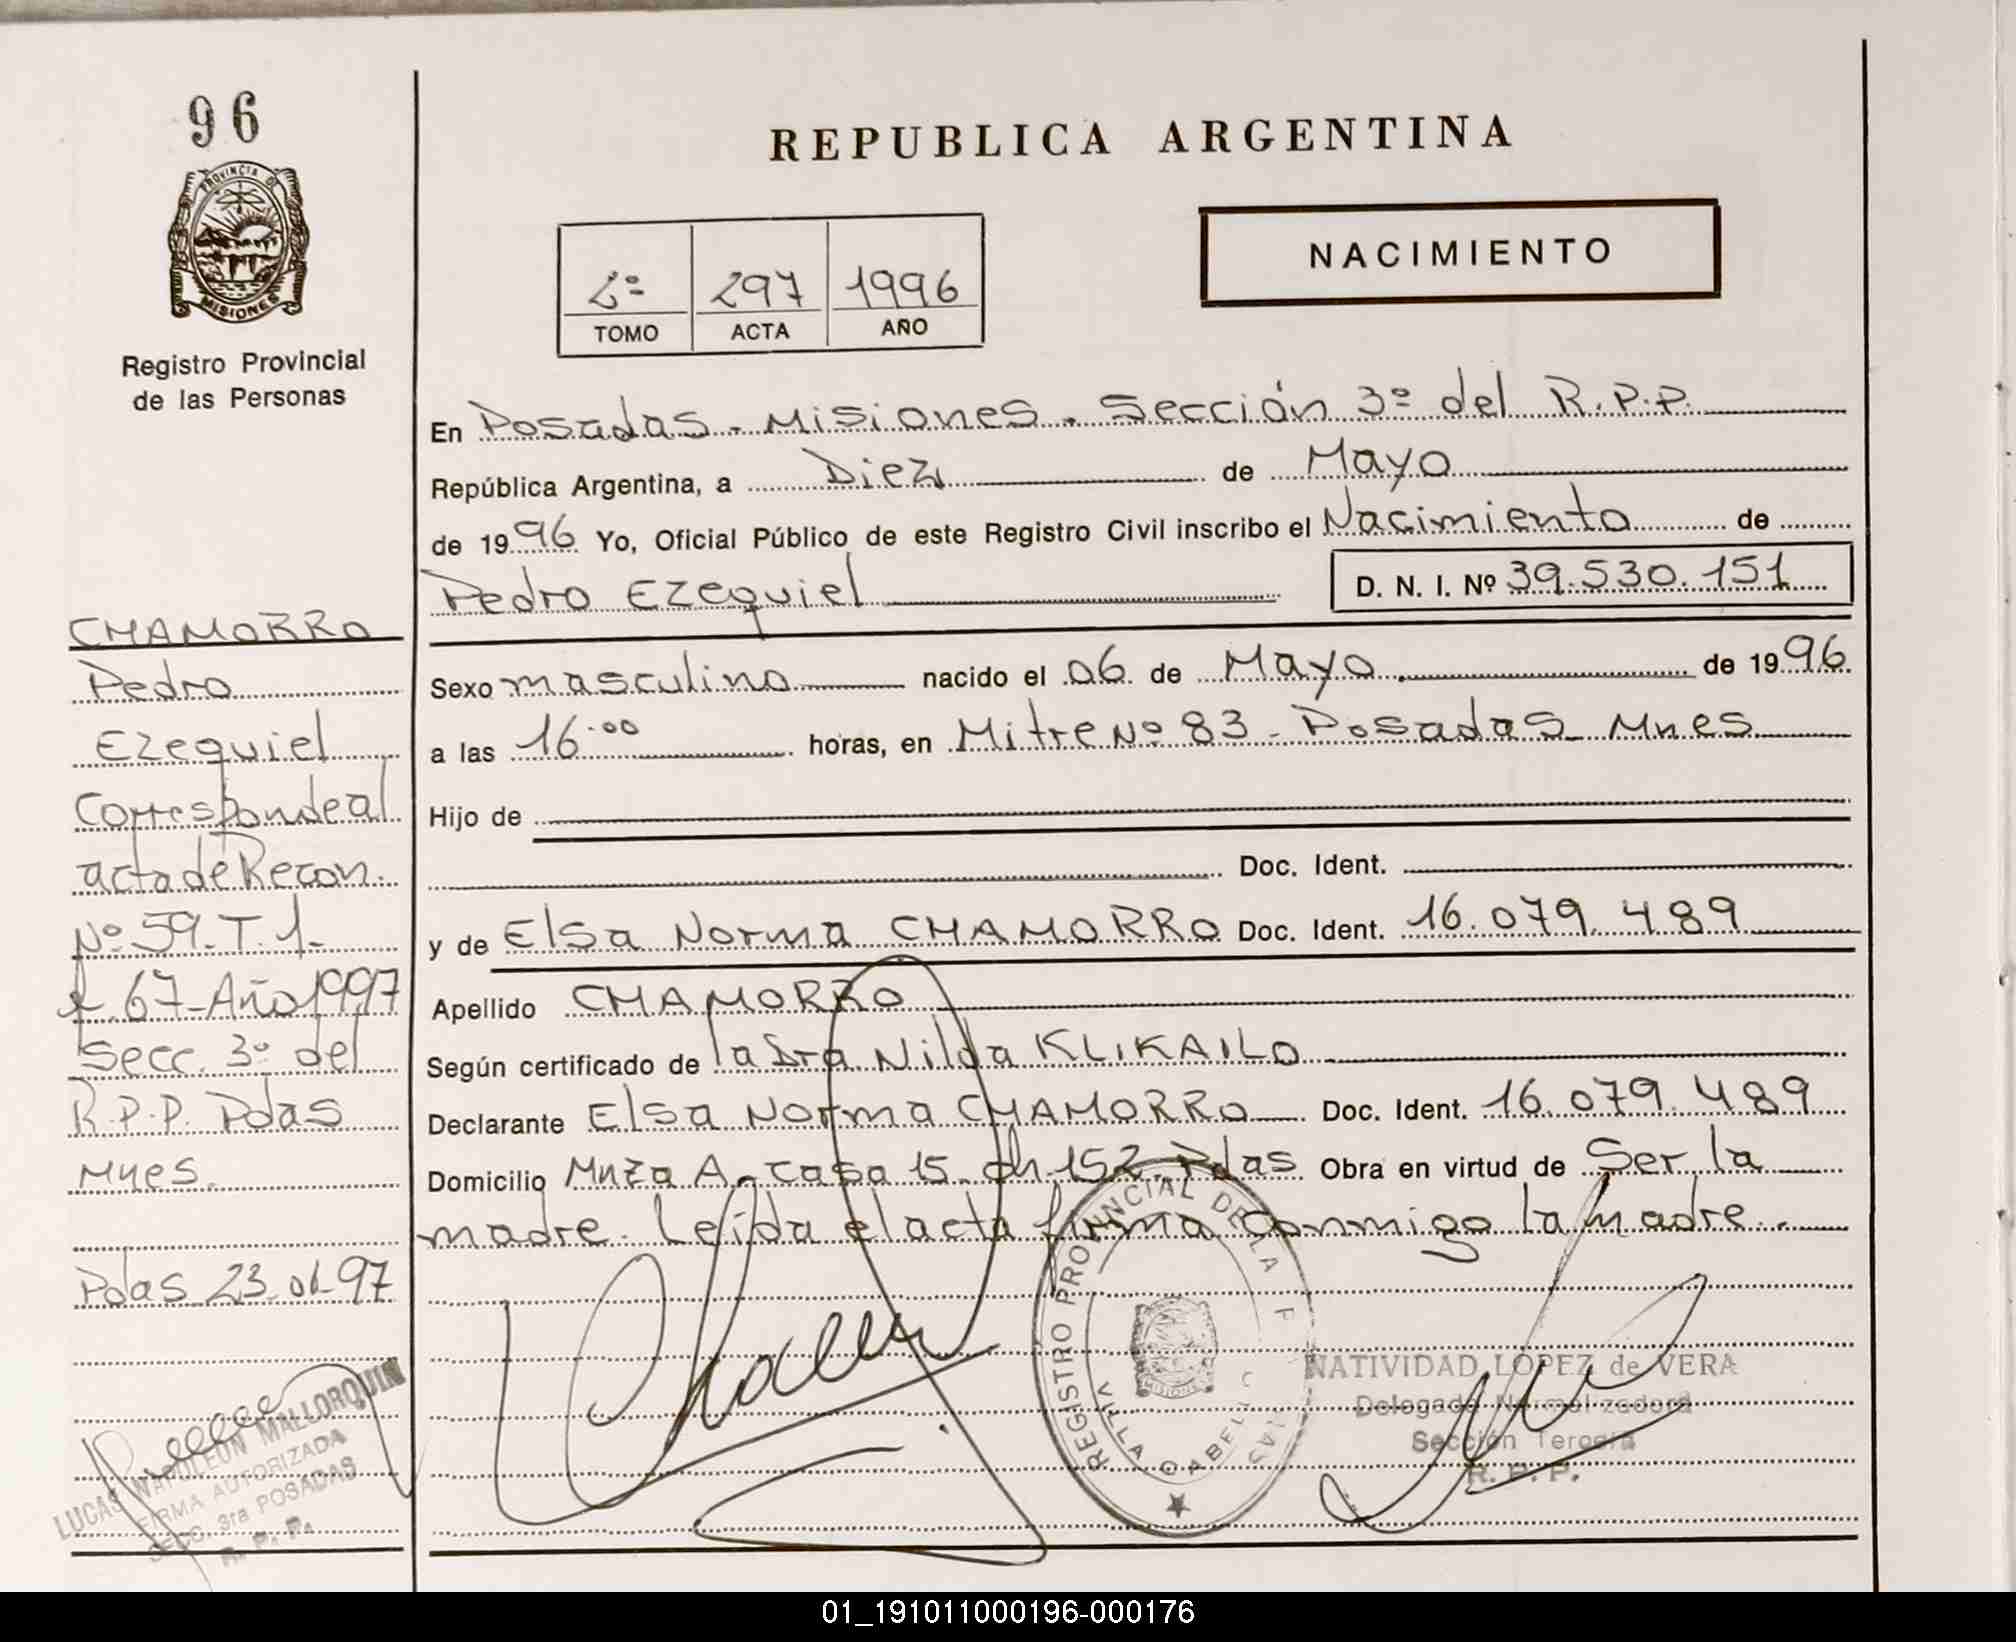 96
PROVINCIA DE
MISIONES
Registro Provincial
de las Personas
CHAMORRO
Pedro
Ezequiel
Corresponde al
acta de Recon.
Nº 59. T. 1.
f. 67 - Año 1997
Secc. 3º del
R.P.P. Pdas
Mnes.
Pdas 23-01-97
LUCAS NAPOLEON MALLORQUIN
FIRMA AUTORIZADA
SECC. 3ra POSADAS
R. P. P.
REPUBLICA ARGENTINA
NACIMIENTO
2º 297 1996
TOMO ACTA AÑO
En Posadas - Misiones. Sección 3º del R.P.P.
República Argentina, a Diez de Mayo
de 1996 Yo, Oficial Público de este Registro Civil inscribo el Nacimiento de
Pedro Ezequiel D. N. I. Nº 39.530.151
Sexo masculino nacido el 06 de Mayo de 1996
a las 16.00 horas, en Mitre Nº 83 - Posadas Mnes
Hijo de
Doc. Ident.
y de Elsa Norma CHAMORRO Doc. Ident. 16.079.489
Apellido CHAMORRO
Según certificado de la Dra Nilda KLIKAILO
Declarante Elsa Norma CHAMORRO Doc. Ident. 16.079.489
Domicilio Mnza A - casa 15. ch. 152. Pdas Obra en virtud de Ser la
madre. Leída el acta firma conmigo la madre.
REGISTRO PROVINCIAL DE LA
VILLA CABELLO
MISIONES
NATIVIDAD LOPEZ de VERA
Delegada Normalizadora
Sección Tercera
R. P. P.
01_191011000196-000176